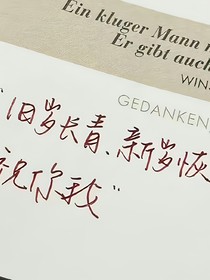 Ein kluger Mann
Er gibt auch
WINS
GEDANKEN,
"旧岁长青、新岁恢
祝你我"